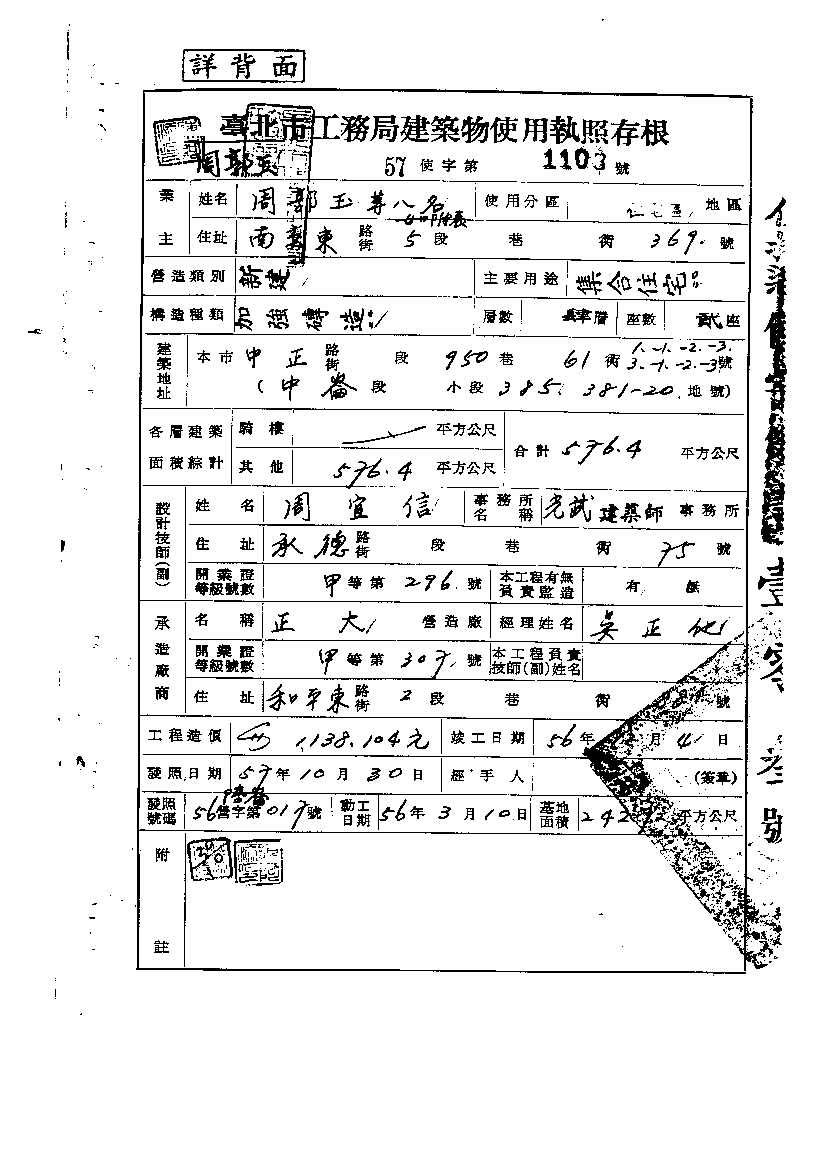 詳背面
臺北市工務局建築物使用執照存根
57 使字第 1103 號
業主 姓名 周郭玉 等八名 使用分區 地區
住址 南 東 路街 5 段 巷 衖 369. 號
營造類別 新建 主要用途 集合住宅
構造種類 加強磚造 層數 肆層 座數 貳座
建築地址 本市 中正 路街 段 950 巷 61 衖 1.-1.-2.-3. 3.-1.-2.-3 號
(中崙 段 小段 385. 381-20. 地號)
各層建築面積綜計 騎樓 平方公尺 合計 576.4 平方公尺
其他 576.4 平方公尺
設計技師(副) 姓名 周宜信 事務所名稱 光武 建築師 事務所
住址 承德 路街 段 巷 衖 75 號
開業證等級號數 甲等第 296. 號 本工程有無負責監造 有 無
承造廠商 名稱 正大 營造廠 經理姓名 吳正
開業證等級號數 甲等第 307. 號 本工程負責技師(副)姓名
住址 和平東 路街 2 段 巷 衖 號
工程造價 1,138.104元 竣工日期 56 年 月 日
發照日期 57年10月30日 經手人 (簽章)
發照號碼 56 營字第 017 號 動工日期 56年3月10日 基地面積 平方公尺
附註
壹零叁號